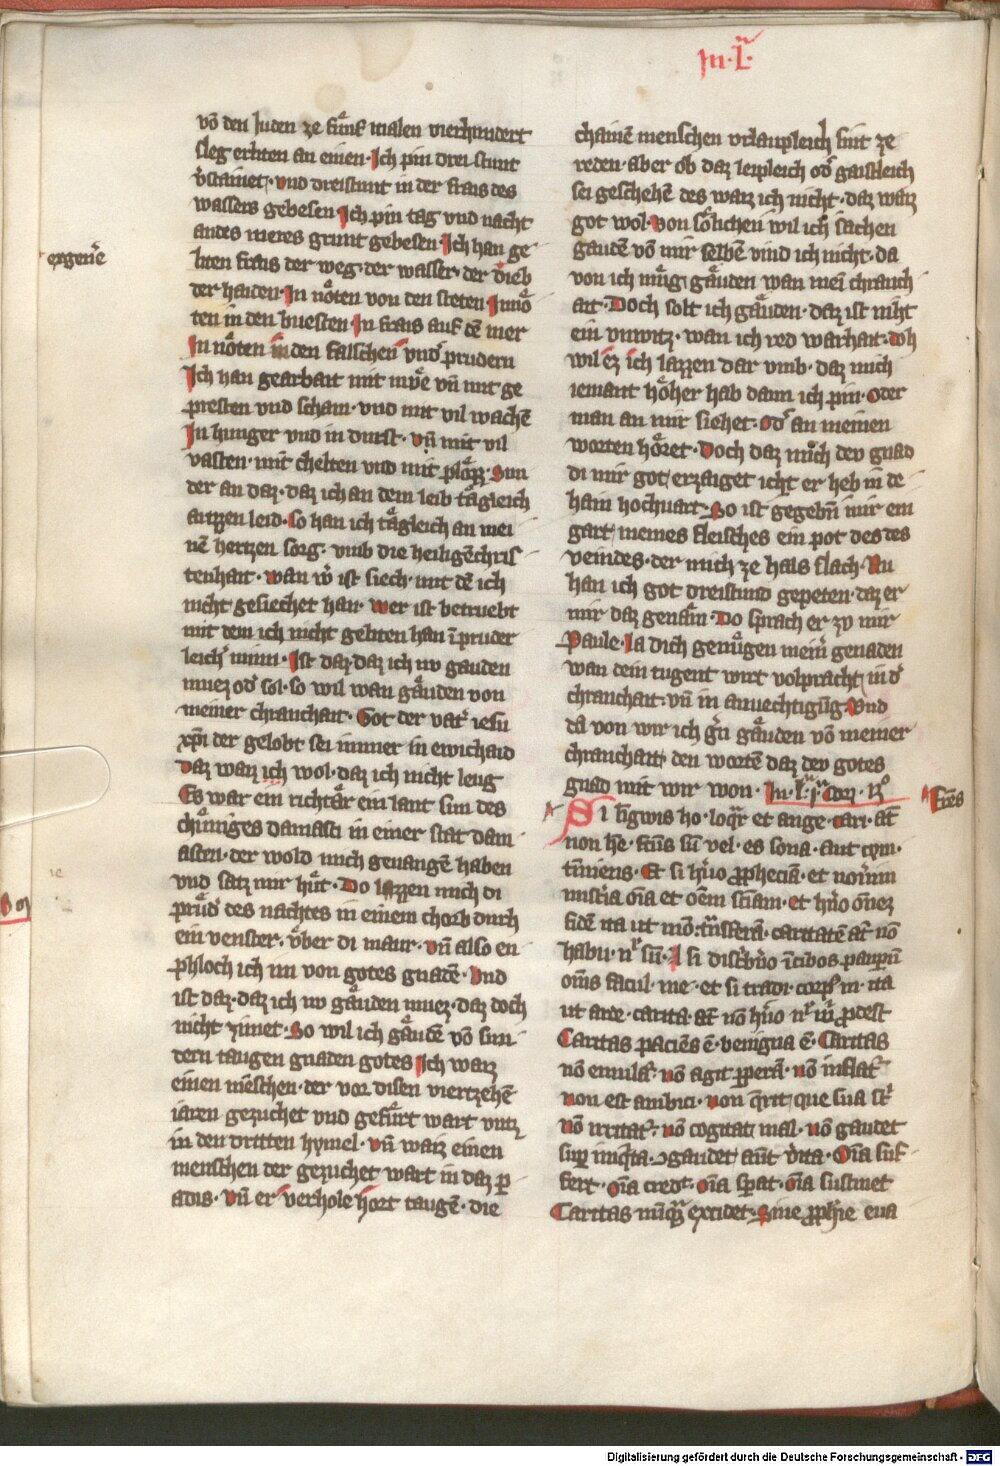 In · L ·
vō den Juden ze fünf malen vierhundert
sleg erliten an einen · Ich pin drei stunt
v̾stainet · vnd dreistunt in der frais des
wassers gebesen Ich pin tag vnd nacht
andes meres grunt gebesen · Ich han ge
liten frais der weg · der wasser · der dieb
der haiden · In nöten von den steten · In nö
ten in den buesten · In frais auf dē mer
In nöten in den falschen vnd̾ prudern
Ich han gearbait mit mve vn̄ mit ge
presten vnd scham · vnd mit vil wachē
In hunger vnd in durst · vn̄ mit vil
vasten · mit chelten vnd mit plözz · Sun
der an daz · daz ich an dem leib tägleich
auzzen leid · so han ich tägleich an mei
nē hertzen sorg · vmb die heiligēchris
tenhait · wan w̾ ist siech · mit dē ich
nicht gesiechet han · wer ist betruebt
mit dem ich nicht geliten han ī pruder
leich̾ minn · Ist daz · daz ich nv gauden
muez od̾ sol · so wil wan gäuden von
meiner chranchait · Got der vat̾ iesu
xp̄i der gelobt sei immer in ewichaid
Daz waiz ich wol · daz ich nicht leug
Es war ein richtär ein lant sun des
chüniges damasci in einer stat dam
ascen · der wold mich geuangē haben
vnd satz mir hüt · Do liezzen mich di
prüd̾ des nachtes in einem chorb durch
ein venster · v̾ber di maur · vn̄ also en
phloch ich im von gotes gnadē · Vnd
ist daz · daz ich nv gäuden muez · daz doch
nicht zimet · So wil ich gäudē vō sun
dern taugen gnaden gotes Ich waiz
einen mēschen · der vor disen viertzehē
iaren gezuchet vnd gefürt wart vntz
in den dritten hymel · vn̄ waiz einen
menschen der gezuchet wart in daz p
adis · vn̄ er verhole hort taugē · die
chainē menschen vrlaupleich sint ze
reden · aber ob daz leipleich od̾ gaistleich
sei geschehē des waiz ich nicht · daz waiz
got wol · Von sölichen wil ich sachen
gaudē vō mir selbē vind ich nicht · da
von ich müg gäuden wan mei chranch
ait · Doch solt ich gäuden · daz ist niht
ein vnwitz · wan ich red warhait · Doh
wil ez ich lazzen dar vmb · daz mich
iemant höher hab dann ich pin · Oder
man an mir siehet · od̾ an meinen
worten höret · Doch daz mich dev gnad
di mir got erzaiget icht er heb in de
hain hochuart · So ist gegebn̄ mir ein
gart meines fleisches ein pot des tes
veindes · der mich ze hals slach · Nu
han ich got dreistund gepeten · daz er
mir daz genäm · Do sprach er zv mir
Paule · La dich genügen mein̾ genaden
wan dein tugent wirt volpracht in d̾
chranchait · vn̄ in anuechtigūg · Vnd
da von wir ich g̾n gäuden vō meiner
chranchait den wortē daz dev gotes
gnad mit wir won · In · L · Iᵃ Cor · xiijᵒ
Si ligwis ho · loqr̄ et ange · cari · at̄
non he · factus su᷑ vel · es sona · aut cym ·
tīniens · Et si h̾uo ꝓpheciā · et nouim
mist̾ia oīa et oēm sciam · et h̾uo om̄ez
fidē ita ut mō: tn̄sferā · caritatē at̄ nō
habu · n̾ sū · Et si dist̾buo ī cibos paupum
om̄s facul · me · et si tradi · corp̾ m · ita
ut arde · carita · at̄ nō h̾uo n̾ m̾ ꝓdest
Caritas paciēs ē · benigna ē · Caritas
nō emulat̾ · nō agit pꝑerā · nō inflat̾
non est ambici · non q̄rit que sua st̾
nō irritat̾ · nō cogitat mal · nō gaudet
sup̲ iniq̾ta · ꝯgaudet aūt v̾ita · Oīa suf
fert · oīa credt · oīa sperat · oīa sustinet
Caritas nūq̄ excidet · Siue ꝓph̾ie eua